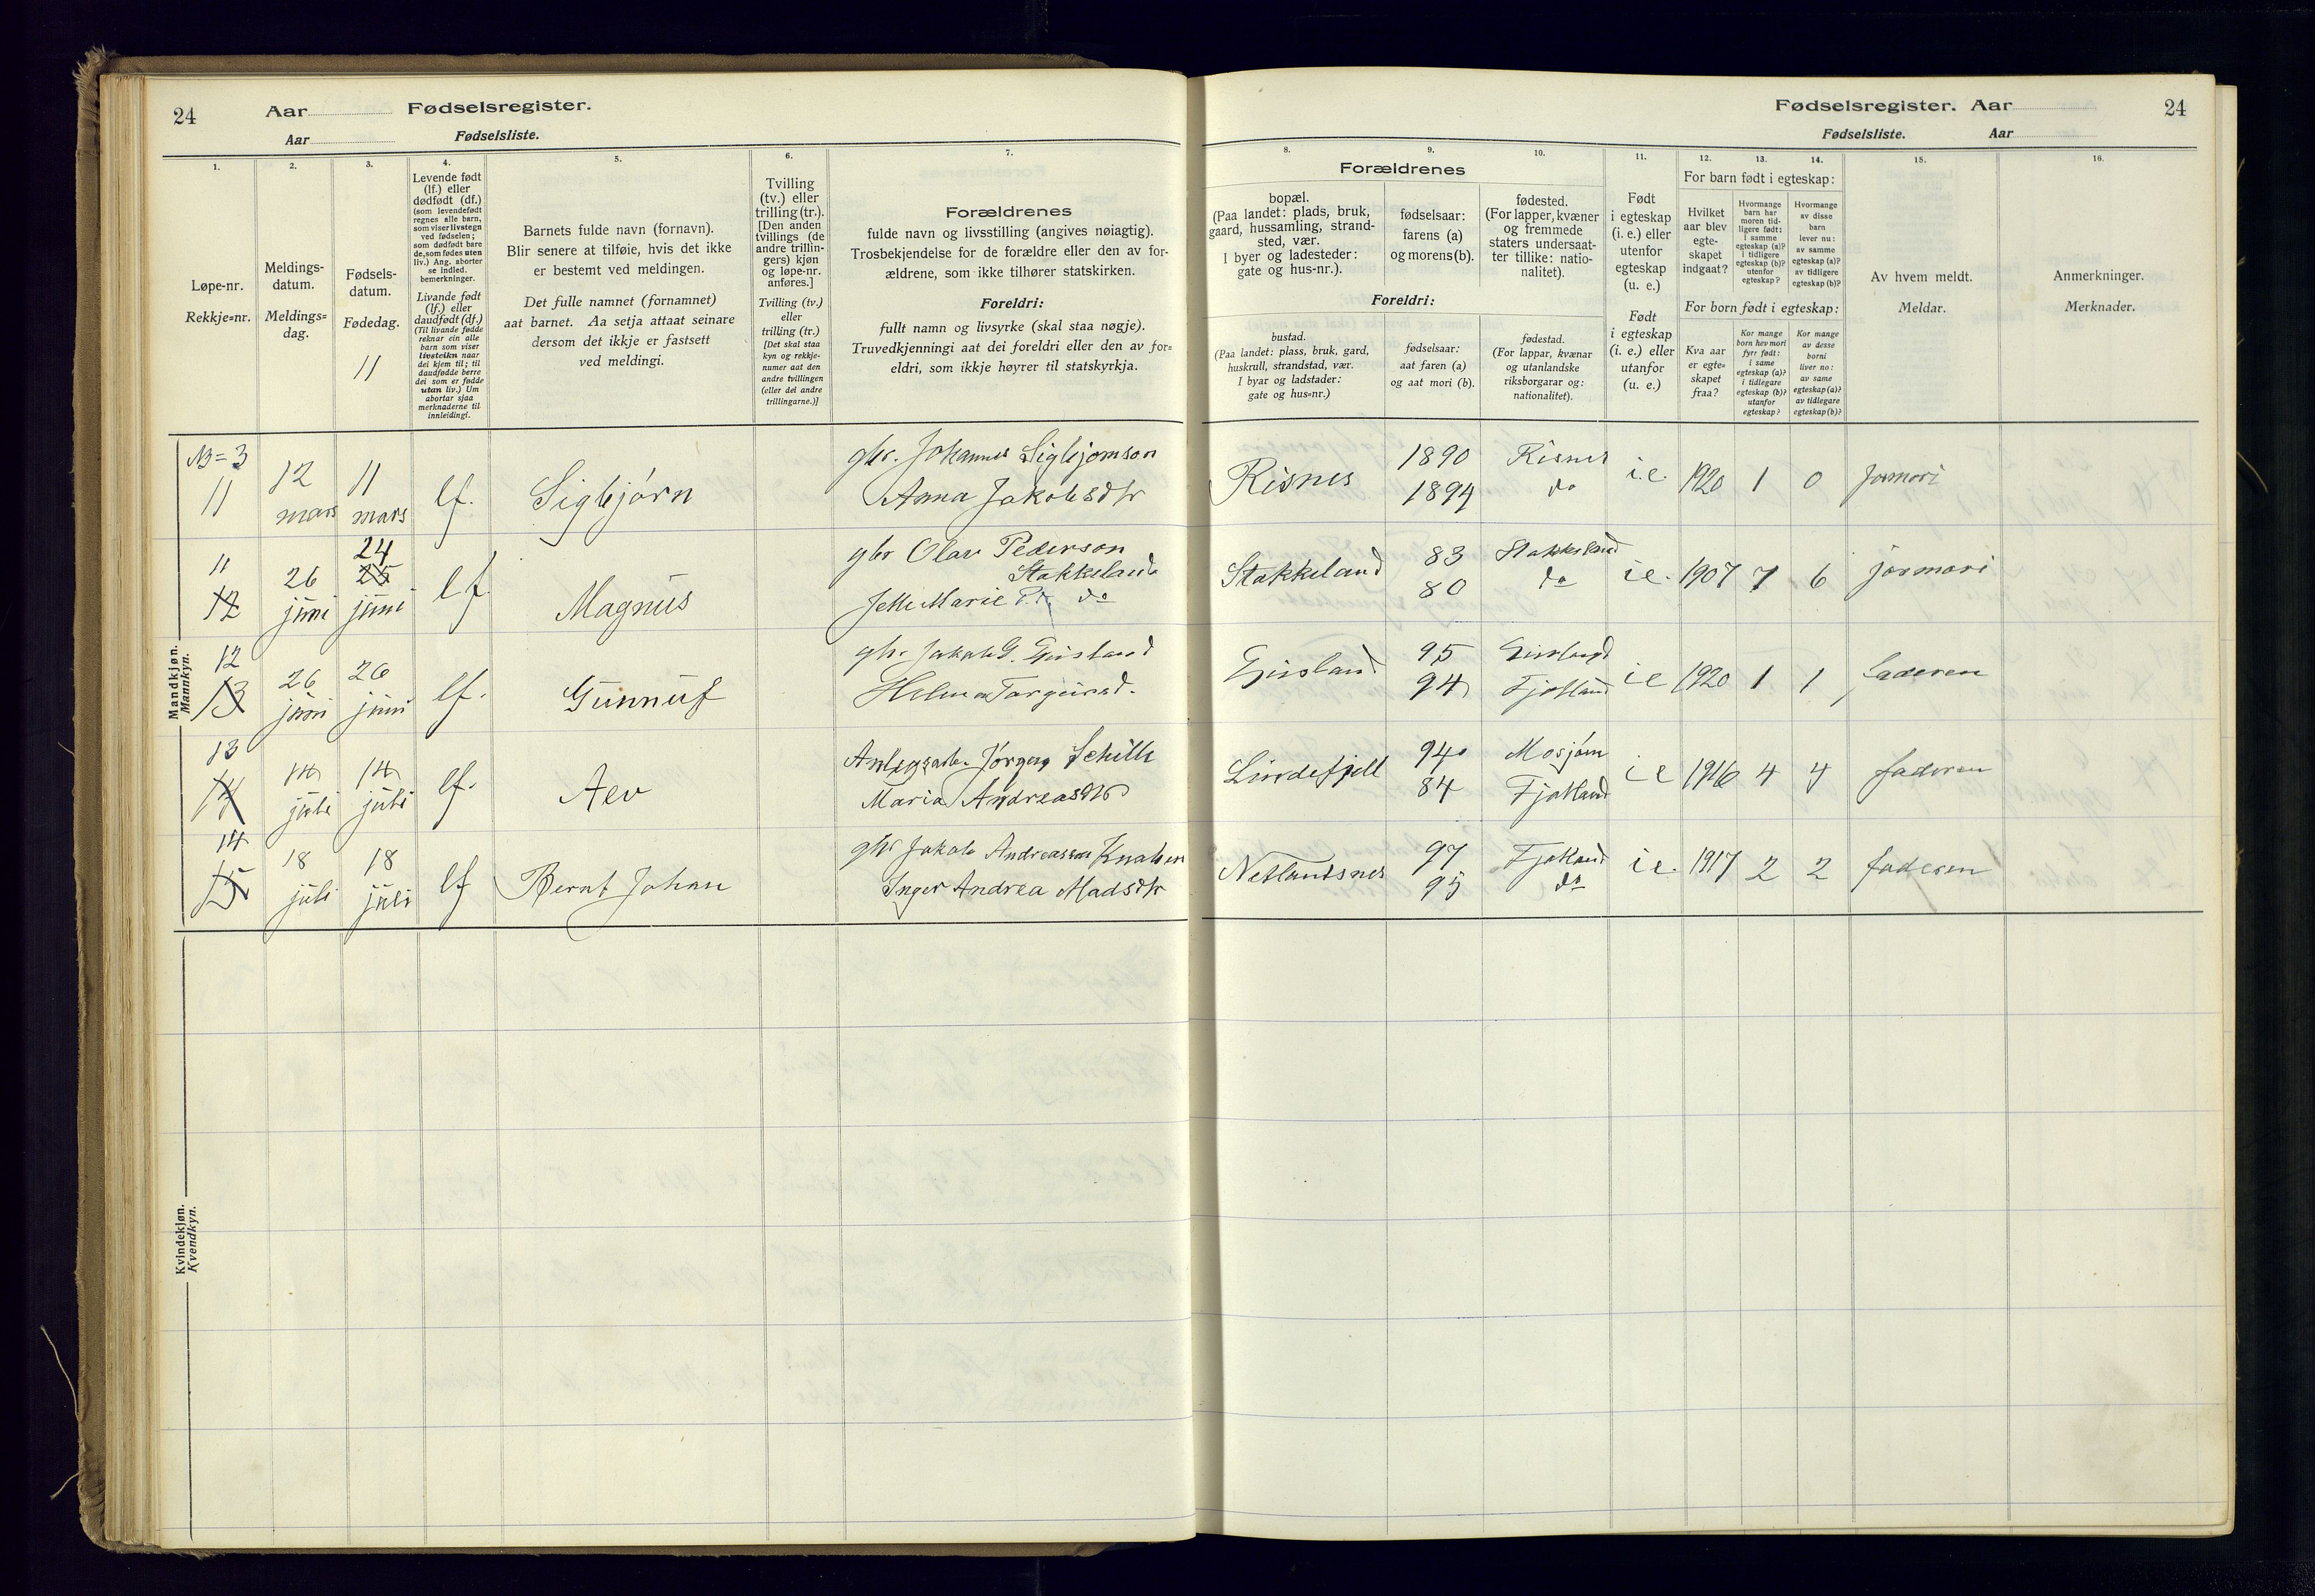 24
Aar Fødselsregister.
Aar Fødselsliste.
Fødselsregister. Aar
24
Fødselsliste. Aar
1.
Løpe-nr.
Rekkje=nr.
2.
Meldings-
datum.
Meldings=
dag.
3.
Fødsels-
datum.
Fødedag.
11
4.
Levende født
(lf.) eller
dødfødt (df.)
(som levendefødt
regnes alle barn,
som viser livstegn
ved fødselen;
som dødfødt bare
de, som fødes uten
liv.) Ang. aborter
se indled.
bemerkninger.
Livande født
(lf.) eller
daudfødt (df.)
(Til livande fødde
reknar ein alle
barn som viser
livsteikn naar
dei kjem til; til
daudfødde berre
dei som er fødde
utan liv.) Um
abortar sjaa
merknaderne til
innleidingi.
5.
Barnets fulde navn (fornavn).
Blir senere at tilføie, hvis det ikke
er bestemt ved meldingen.
Det fulle namnet (fornamnet)
aat barnet. Aa setja attaat seinare
dersom det ikkje er fastsett
ved meldingi.
6.
Tvilling
(tv.) eller
trilling (tr.).
[Den anden
tvillings (de
andre trillin-
gers) kjøn
og løpe-nr.
anføres.]
Tvilling (tv.)
eller
trilling (tr.)
[Det skal staa
kyn og rekkje-
numer aat den
andre tvillingen
(eller dei andre
trillingarne.)]
7.
Forældrenes
fulde navn og livsstilling (angives nøiagtig).
Trosbekjendelse for de forældre eller den av for-
ældrene, som ikke tilhører statskirken.
Foreldri:
fullt namn og livsyrke (skal staa nøgje).
Truvedkjenningi aat dei foreldri eller den av for=
eldri, som ikkje høyrer til statskyrkja.
Forældrenes
8.
bopæl.
(Paa landet: plads, bruk,
gaard, hussamling, strand-
sted, vær.
I byer og ladesteder:
gate og hus-nr.).
9.
fødselsaar:
farens (a)
og morens (b).
10.
fødested.
(For lapper, kvæner
og fremmede
staters undersaat-
ter tillike: natio-
nalitet).
Foreldri:
bustad.
(Paa landet: plass, bruk, gard,
huskrull, strandstad, vær.
I byar og ladstader:
gate og hus=nr.)
fødselsaar:
aat faren (a)
og aat mori (b).
fødestad.
(For lappar, kvænar
og utanlandske
riksborgarar og:
nationalitet).
11.
Født
i egteskap
(i. e.) eller
utenfor
egteskap
(u. e.)
Født
i egteskap
(i. e.) eller
utanfor
(u. e.)
12.
13.
14.
For barn født i egteskap:
Hvilket
aar blev
egte-
skapet
indgaat?
Hvormange
barn har
moren tid-
ligere født:
i samme
egteskap (a)?
i tidligere
egteskap (b)?
utenfor
egteskap?
Hvormange
av disse
barn
lever nu:
av samme
egteskap (a)?
av tidligere
egteskap (b)?
For born født i egteskap:
Kva aar
er egte=
skapet
fraa?
Kor mange
born hev mori
fyrr født:
i same
egteskap (a)?
i tidlegare
egteskap (b)?
utanfor
egteskap?
Kor mange
av desse
borni
liver no:
av same
egteskap (a)?
av tidlegare
egteskap (b)?
15.
Av hvem meldt.
Meldar.
16.
Anmerkninger.
Merknader.
Mandkjøn.
Mannkyn.
3
11 12 mars 11 mars lf. Sigbjørn
gbr. Johannes Sigbjørnson
Anna Jakobsdtr
Risnes 1890 Risnes i.e. 1920 1 0 jormori
1894 do
11
12 26 juni 24 25 juni lf. Magnus
gbr Olav Pederson
Stakkeland
Marie do
Stakkeland 83 Stakkeland i e. 1907 7 6 jormori
80 do
12
13 26 juni 26 juni lf. Gunnuf
gbr. Jakob G.
Eirsland 95 i e 1920 1 1 faderen
94 Fjotland
13
14 14 juli 14 juli lf.
Jørgen
Maria Andreasdtr
Lindefjell 94 Mosjøen i e 1916 4 4 faderen
84 Fjotland
14
15 18 juli 18 juli lf Bernt Johan
gbr Jakob Andreassen Knaben
Inger Andrea Madsdtr
Netlandsnes 97 Fjotland i e. 1917 2 2 faderen
95 do
Kvindekjøn.
Kvendkyn.